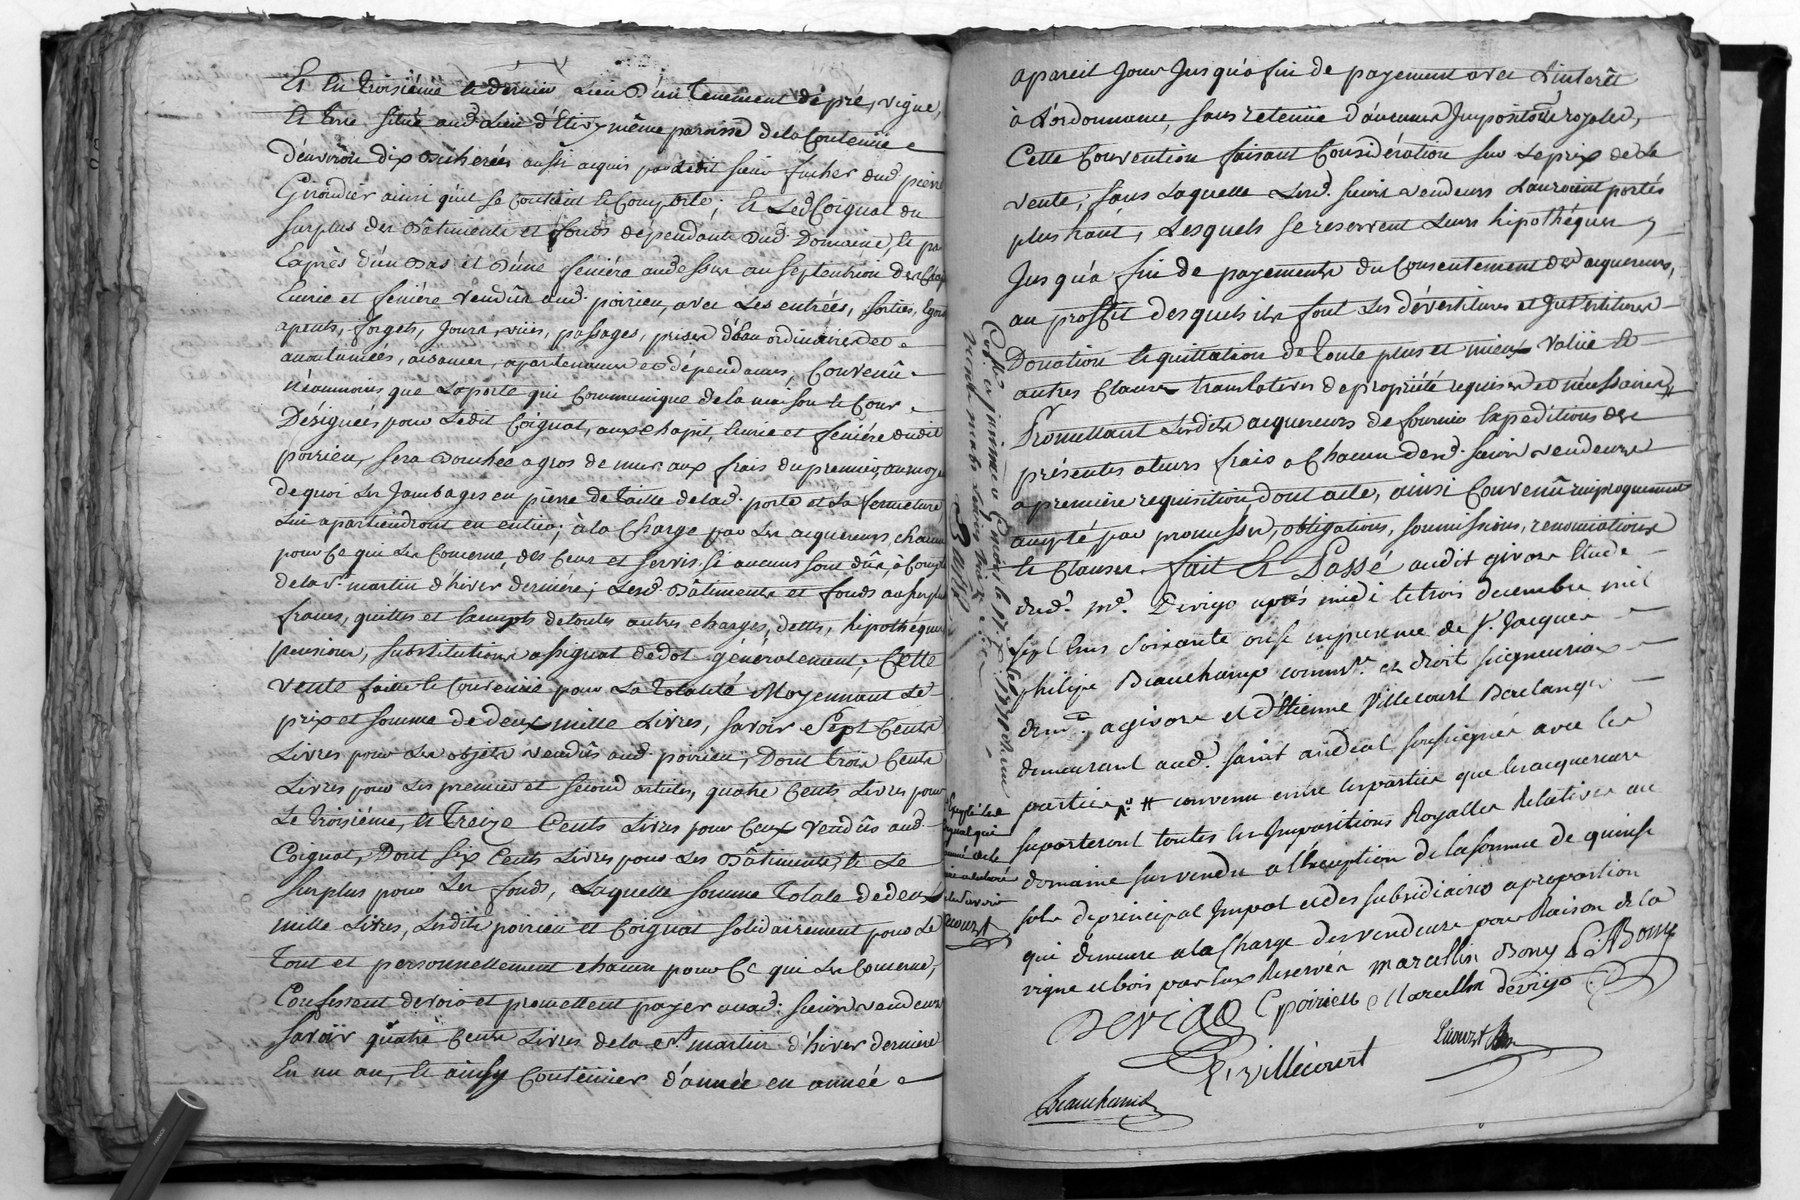 Et En troisiéme et dernier Lieu d'un tenement de pré, vigne,
Et terre situé aud. Lieu d'Etivy même paroisse de la Contenüe
d'environ dix bicherées aussi acquis par ledit sieur fucher dud. pierre
Girondier ainsi quil se contient et Comporte; Et Led. Coignat du
surplus des Bâtiments et fonds dependants dud. Domaine, le pa
Eaprès d'un Bas et d'une feniére audessus au septentrion de
Ecurie et feniére vendûs aud. poirieu, avec Les entrées, sorties, Egouts
apents, forgets, Jours, vües, passages, prises d'Eau ordinaires et
acoutumées, aisances, apartenances et dépendances, Convenû
Néanmoins que La porte qui Communique de la maison et Cour
Désignées pour Ledit Coignat, aux chapit, Ecurie et feniére dudit
poirieu, sera Bouchée a gros de mur aux frais du premier, au moyen
de quoi Les Jambages en pierre de taille de lad. porte et La fermeture
Lui apartiendront en entier; à la Charge par Les acquereurs, chacun
pour Ce qui Les Concerne, des Cens et servis si aucuns sont dûs, à Compter
de la St. martin d'hiver derniére; Lesd. Bâtiments et fonds au surplus
francs, quittes et Exempts de toutes autres charges, dettes, hipothéques
pensions, substitutions assignat de dot généralement; Cette
vente faitte et Convenüe pour La totalité Moyennant Le
prix et somme de deux mille Livres, savoir Sept Cents
Livres pour Les objets vendûs aud. poirieu, Dont trois Cents
Livres pour Les premier et second articles, quatre Cents Livres pour
Le troisiéme, et Treize Cents Livres pour Ceux vendûs aud.
Coignat, Dont six Cents Livres pour Les Bâtiments, et Le
surplus pour Les fonds, Laquelle somme totale de deux
mille Livres, Lesdits poirieu et Coignat solidairement pour Le
tout et personnellement chacun pour Ce qui Les Concerne,
Confessent devoir et promettent payer auxd. sieurs vendeurs
Savoir quatre Cents Livres de la St. martin d'hiver derniére
En un an, et ainsy Continüer d'année en année
apareil Jour Jusqu'a fin de payement avec L'interêt
à L'ordonnance, sans retenüe d'aucunes Impositions royales,
Cette Convention faisant Considération sur Le prix de La
vente, sans Laquelle Lesd. sieurs vendeurs L'auroient portés
plus haut, Lesquels se reservent Leurs hipothéques
Jusqu'a fin de payements du Consentement des acquereurs,
au proffit desquels ils font Les dévestitures et Investitures
Donation et quittation de toute plus et mieux valüe et
autres Clauses translatives de propriété requises et nécessaires #
Promettant Lesdits acquereurs de fournir Expeditions des
présentes a leurs frais a Chacun desd. sieurs vendeurs
a premiére requisition dont acte, ainsi Convenû réciproquement
accepté par promesses, obligations, soumissions, renonciations
et Clauses. fait Et Passé audit givors Etude
dud. Me. Devigo après midi le trois decembre mil
sept Cens soixante onze en presence de Sr. Jacques
philipe Beauchamp commis. ez droit seigneuriaux
demt. a givors et d'Etienne Villecourt Boulanger
demeurant aud. saint andeol soussignés avec les
parties # convenu entre les parties que les acquereurs
suporteront toutes les Impositions Royalles Relatives au
domaine sus vendu a l'Exception de la somme de quinse
sols de principal Impot et des subsidiaires a proportion
qui demeure a la Charge des vendeurs pour Raison de la
vigne et bois par Eux Reservés marcellin Bony P. Bony
Devigo C poirieu Marcellin Devigo
E. Villecourt
Beauchamp